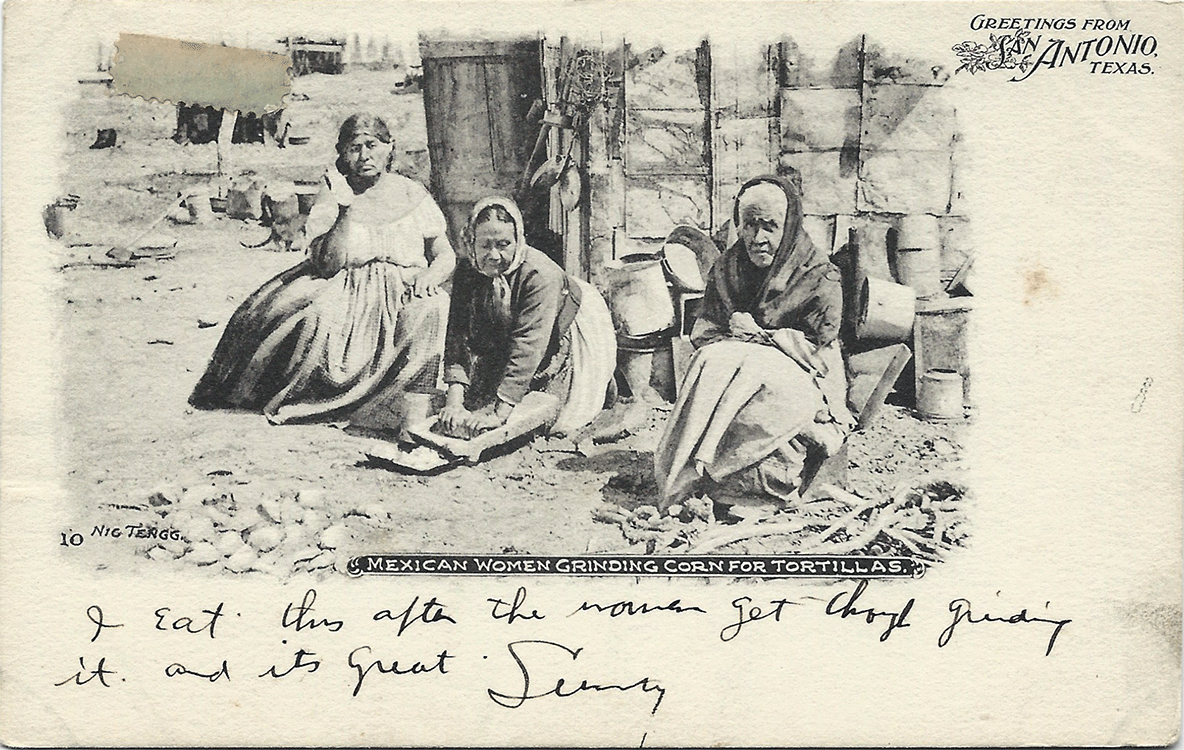 GREETINGS FROM
SAN ANTONIO,
TEXAS.
10 NIC TENGG.
MEXICAN WOMEN GRINDING CORN FOR TORTILLAS.
I eat this after the women get through grinding
it. and its great.